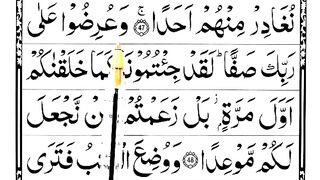 نُغَادِرْ مِنْهُمْ اَحَدًا ۚ ﴿47﴾ وَعُرِضُوْا عَلٰى
رَبِّكَ صَفًّا ؕ لَقَدْ جِئْتُمُوْنَا كَمَا خَلَقْنٰكُمْ
اَوَّلَ مَرَّةٍ ؗ بَلْ زَعَمْتُمْ نَّجْعَلَ
لَكُمْ مَّوْعِدًا ﴿48﴾ وَوُضِعَ فَتَرَى